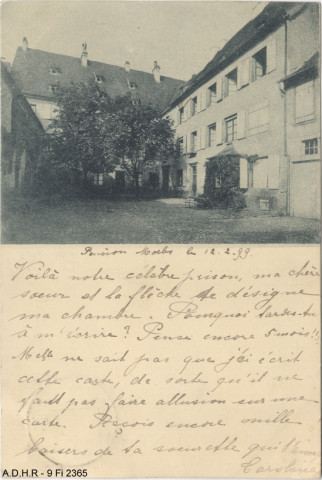 Prison Moelus le 12.2.99
Voilà notre célèbre prison, ma chère
soeur et la flèche te désigne
ma chambre. Pourquoi tardes-tu
à m'écrire? Pense encore 5 mois!!
Melle ne sait pas que j'ai écrit
cette carte, de sorte qu'il ne
faut pas faire allusion sur une
carte. Reçois encore mille
baisers de ta soeurette qui t'aime
Caroline
A.D.H.R - 9 Fi 2365